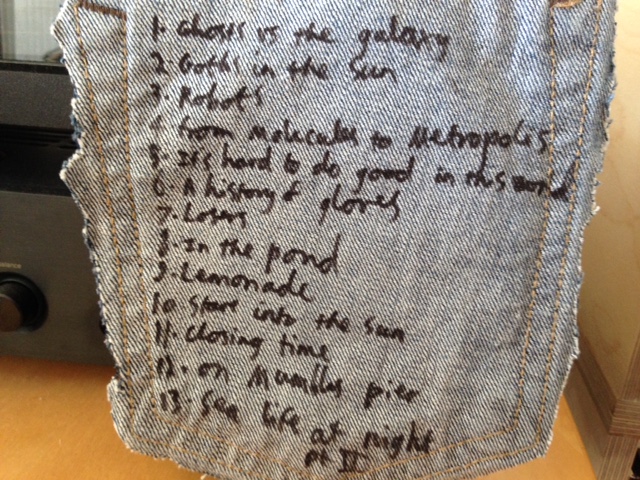 1. Ghosts vs the galaxy
2. Goths in the sun
3. Robots
4. From Molecules to Metropolis
5. It's hard to do good in this world
6. A history of gloves
7. Losers
8. In the pond
9. Lemonade
10. Stare into the sun
11. Closing time
12. on Mumbles pier
13. Sea life at night
pt II